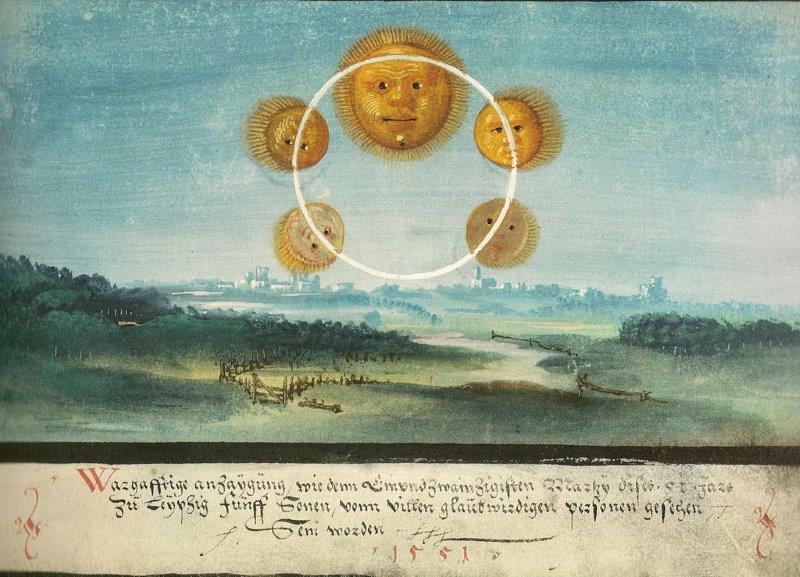 Warhafftige anzaygung, wie dem Einundzwaintzigisten Martij dises 51 Jars
zu Leyptzig Funff Sonen, vonn villen glaubwirdigen personen gesehen
Sein worden
1551